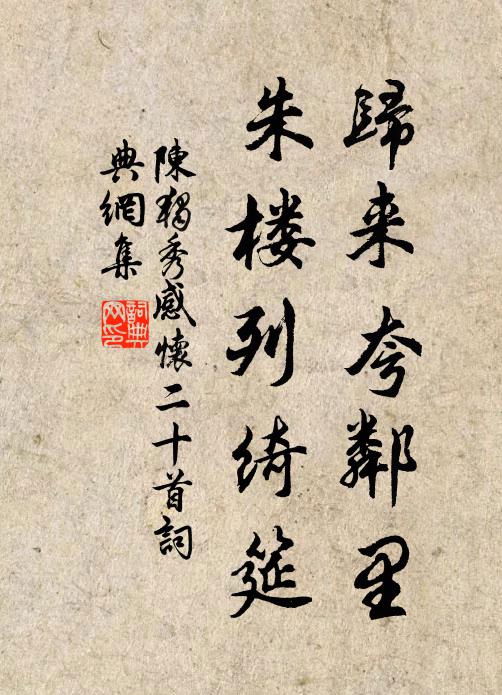 歸来夸鄰里
朱楼列绮筵
陳独秀感懷二十首詞
典網集
詞典网印